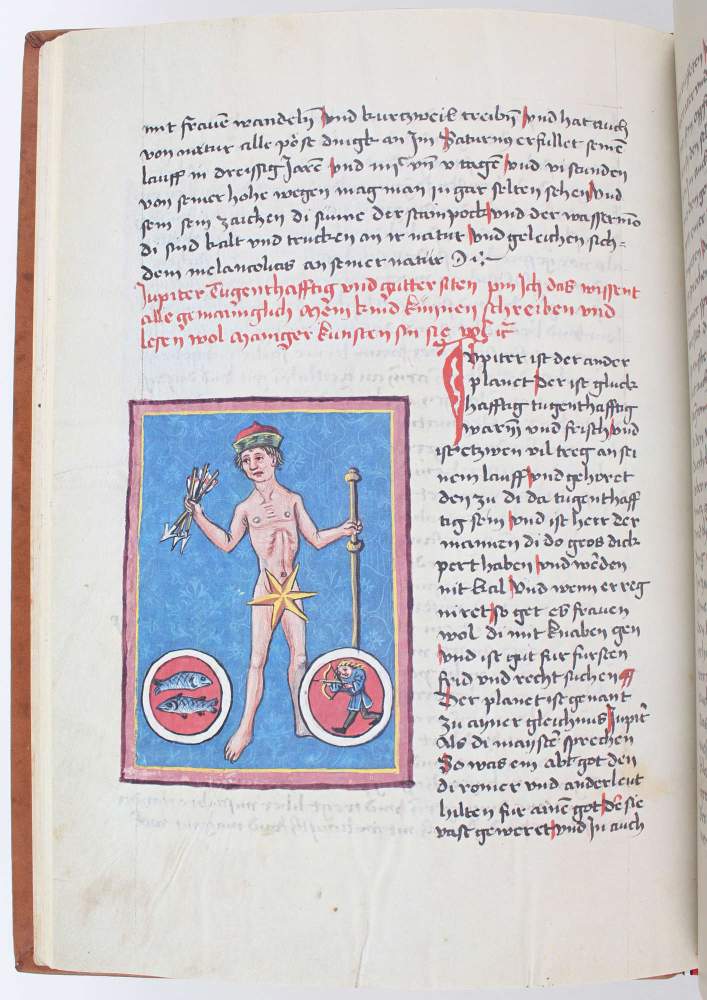 mit frawē wandelñ und kurtzweil treibñ und hat auch
von natur alle pöse dingk an Im Saturnus erfullet seinē
lauff in dreissig Jarē und mit vnd v tagen und vi stunden
von seiner hohe wegen mag man jn gar selten sehen und
sem sein zaichen di sinne der stainpock und der wasserman
di sind kalt vnd trucken an ir natur und geleichen sich=
dem melancolicus an seiner natur
Jupiter Tugenthafftig vnd gutter siten pin Ich das wissent
alle gemainglich Mein kind künnen schreiben vnd
lesen wol Mainger kunsten sin sie vol
Jupiter ist der ander
planet Der ist gluck
hafftig tugenthafftig
warm und frisch und
ist etzwen vil treg an sei
nem lauff und gehoret
den zu di da tugenthaff
tig sein und ist herr der
mannen di do gros dick
pert haben und werden
nit kal und wenn er reg
niret so get es frauen
wol di mit knaben gen
und ist gut fur fursten
frid und recht suchen
Der planet ist genant
zu ainer gleichnus Jupitr
Als di maystē sprechen
So was ein abtgot den
di romer und ander leut
hilten fur ainen got de sie
vast geweret und In auch